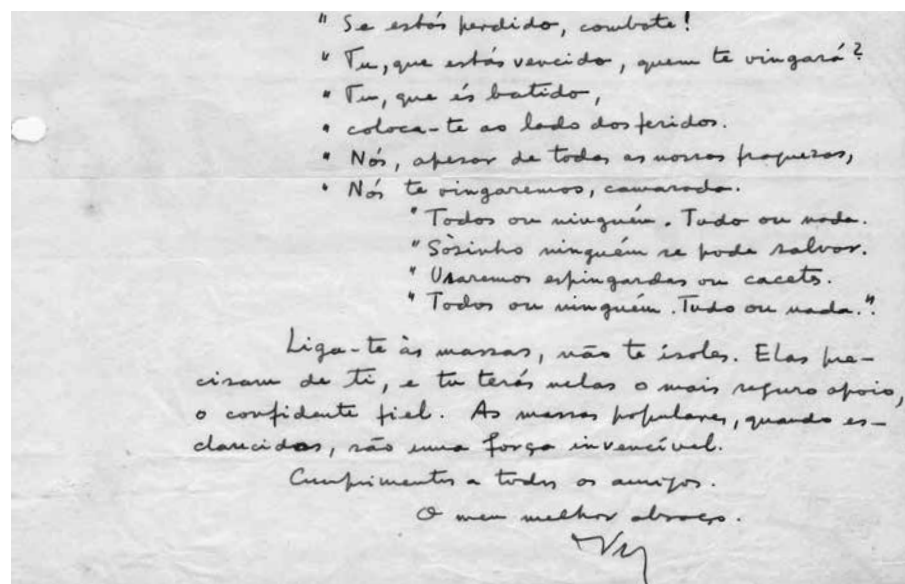 " Se estás perdido, combate!
" Tu, que estás vencido, quem te vingará?
" Tu, que és batido,
" coloca-te ao lado dos feridos.
" Nós, apesar de todas as nossas fraquezas,
" Nós te vingaremos, camarada.
" Todos ou ninguém. Tudo ou nada.
" Sòsinho ninguém se pode salvar.
" Usaremos espingardas ou cacets.
" Todos ou ninguém. Tudo ou nada."
Liga-te às massas, não te isoles. Elas pre-
cisam de ti, e tu terás nelas o mais seguro apoio,
o confidente fiel. As massas populares, quando es-
clarecidas, são uma força invencível.
Cumprimentos a todos os amigos.
O meu melhor abraço.